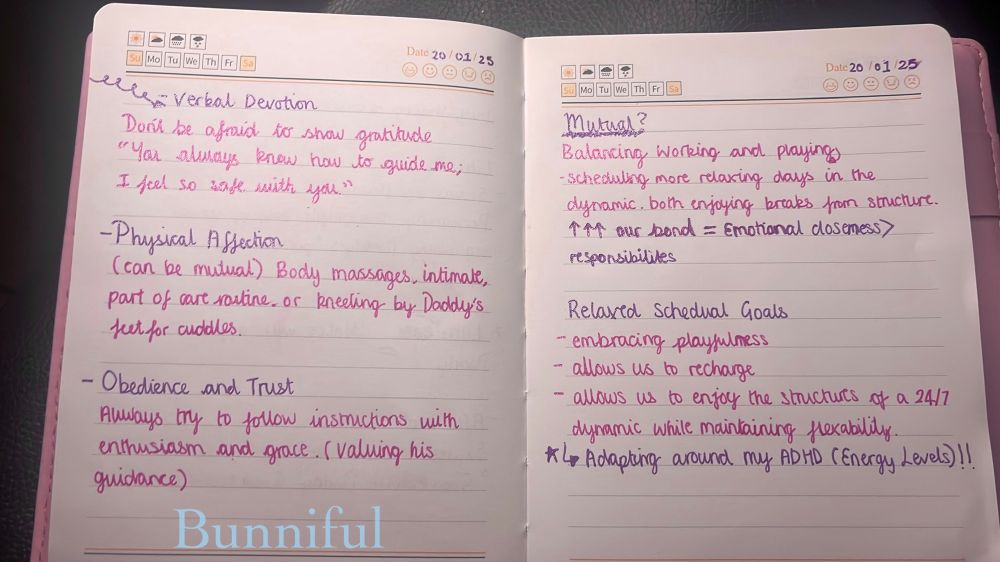 Su Mo Tu We Th Fr Sa
Date 20 / 01 / 25
- Verbal Devotion
Don't be afraid to show gratitude
"You always know how to guide me;
I feel so safe with you."
- Physical Affection
(can be mutual) Body massages, intimate,
part of care routine. or kneeling by Daddy's
feet for cuddles.
- Obedience and Trust
Always try to follow instructions with
enthusiasm and grace. (Valuing his
guidance)
Bunniful
Su Mo Tu We Th Fr Sa
Date 20 / 01 / 25
Mutual?
Balancing working and playing
- scheduling more relaxing days in the
dynamic. both enjoying breaks from structure.
↑↑↑ our bond = Emotional closeness >
responsibilites
Relaxed Schedual Goals
- embracing playfulness
- allows us to recharge
- allows us to enjoy the structure of a 24/7
dynamic while maintaining flexability.
*↳ Adapting around my ADHD (Energy Levels)!!